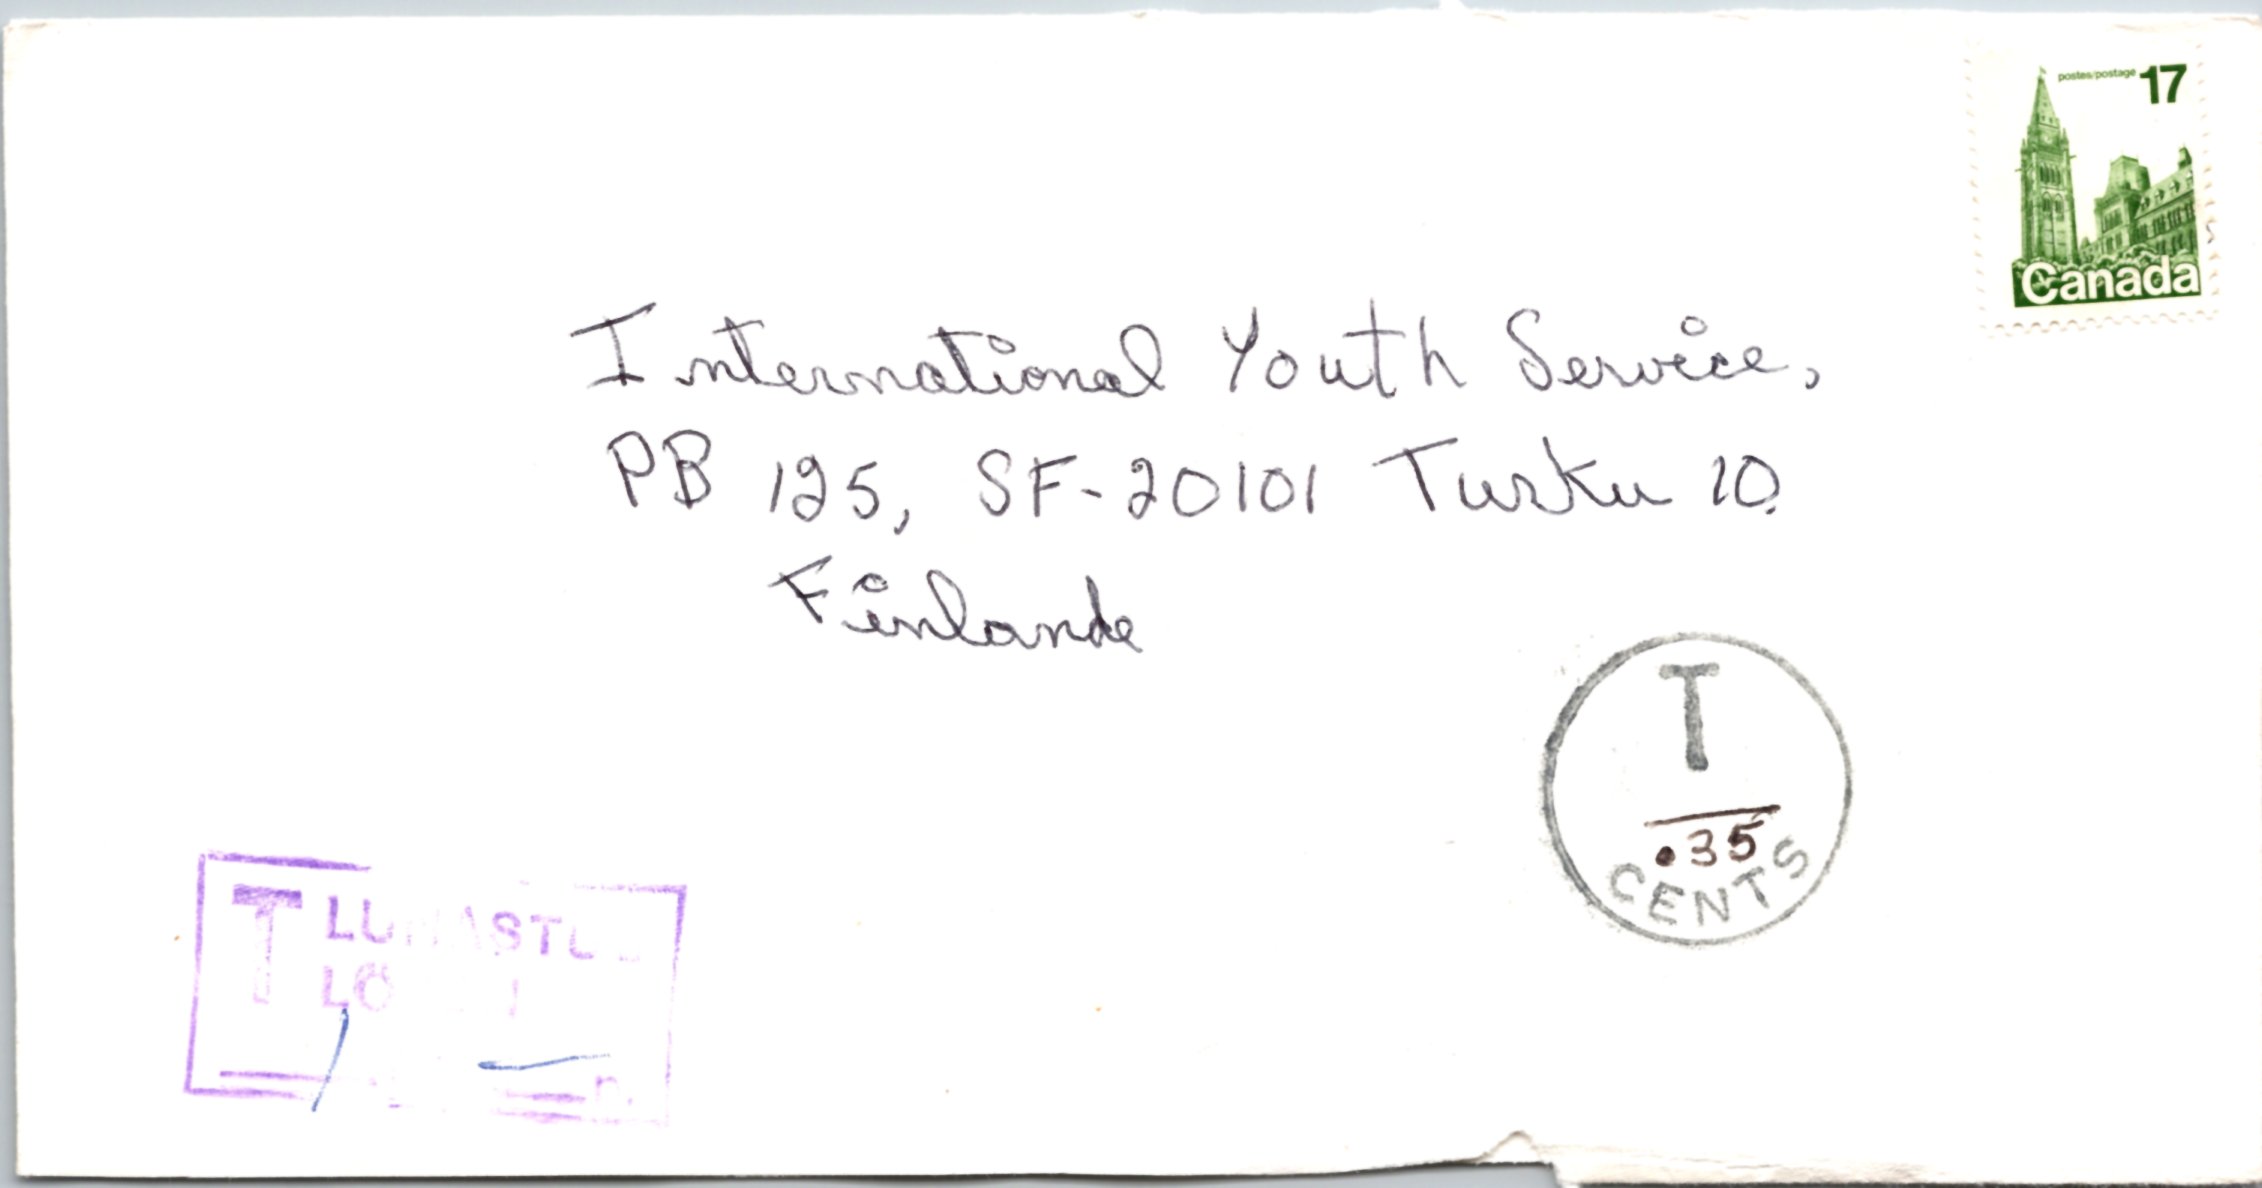 postes/postage 17
Canada
International Youth Service,
PB 125, SF-20101 Turku 10.
Finlande
T
.35
CENTS
T